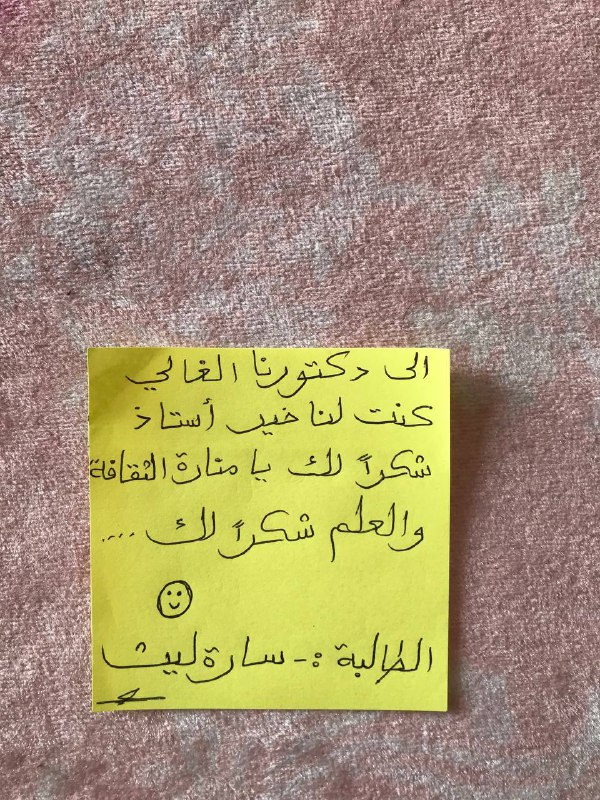 الى دكتورنا الغالي
كنت لنا خير أستاذ
شكراً لك يا منارة الثقافة
والعلم شكراً لك ....
الطالبة :- سارة ليث